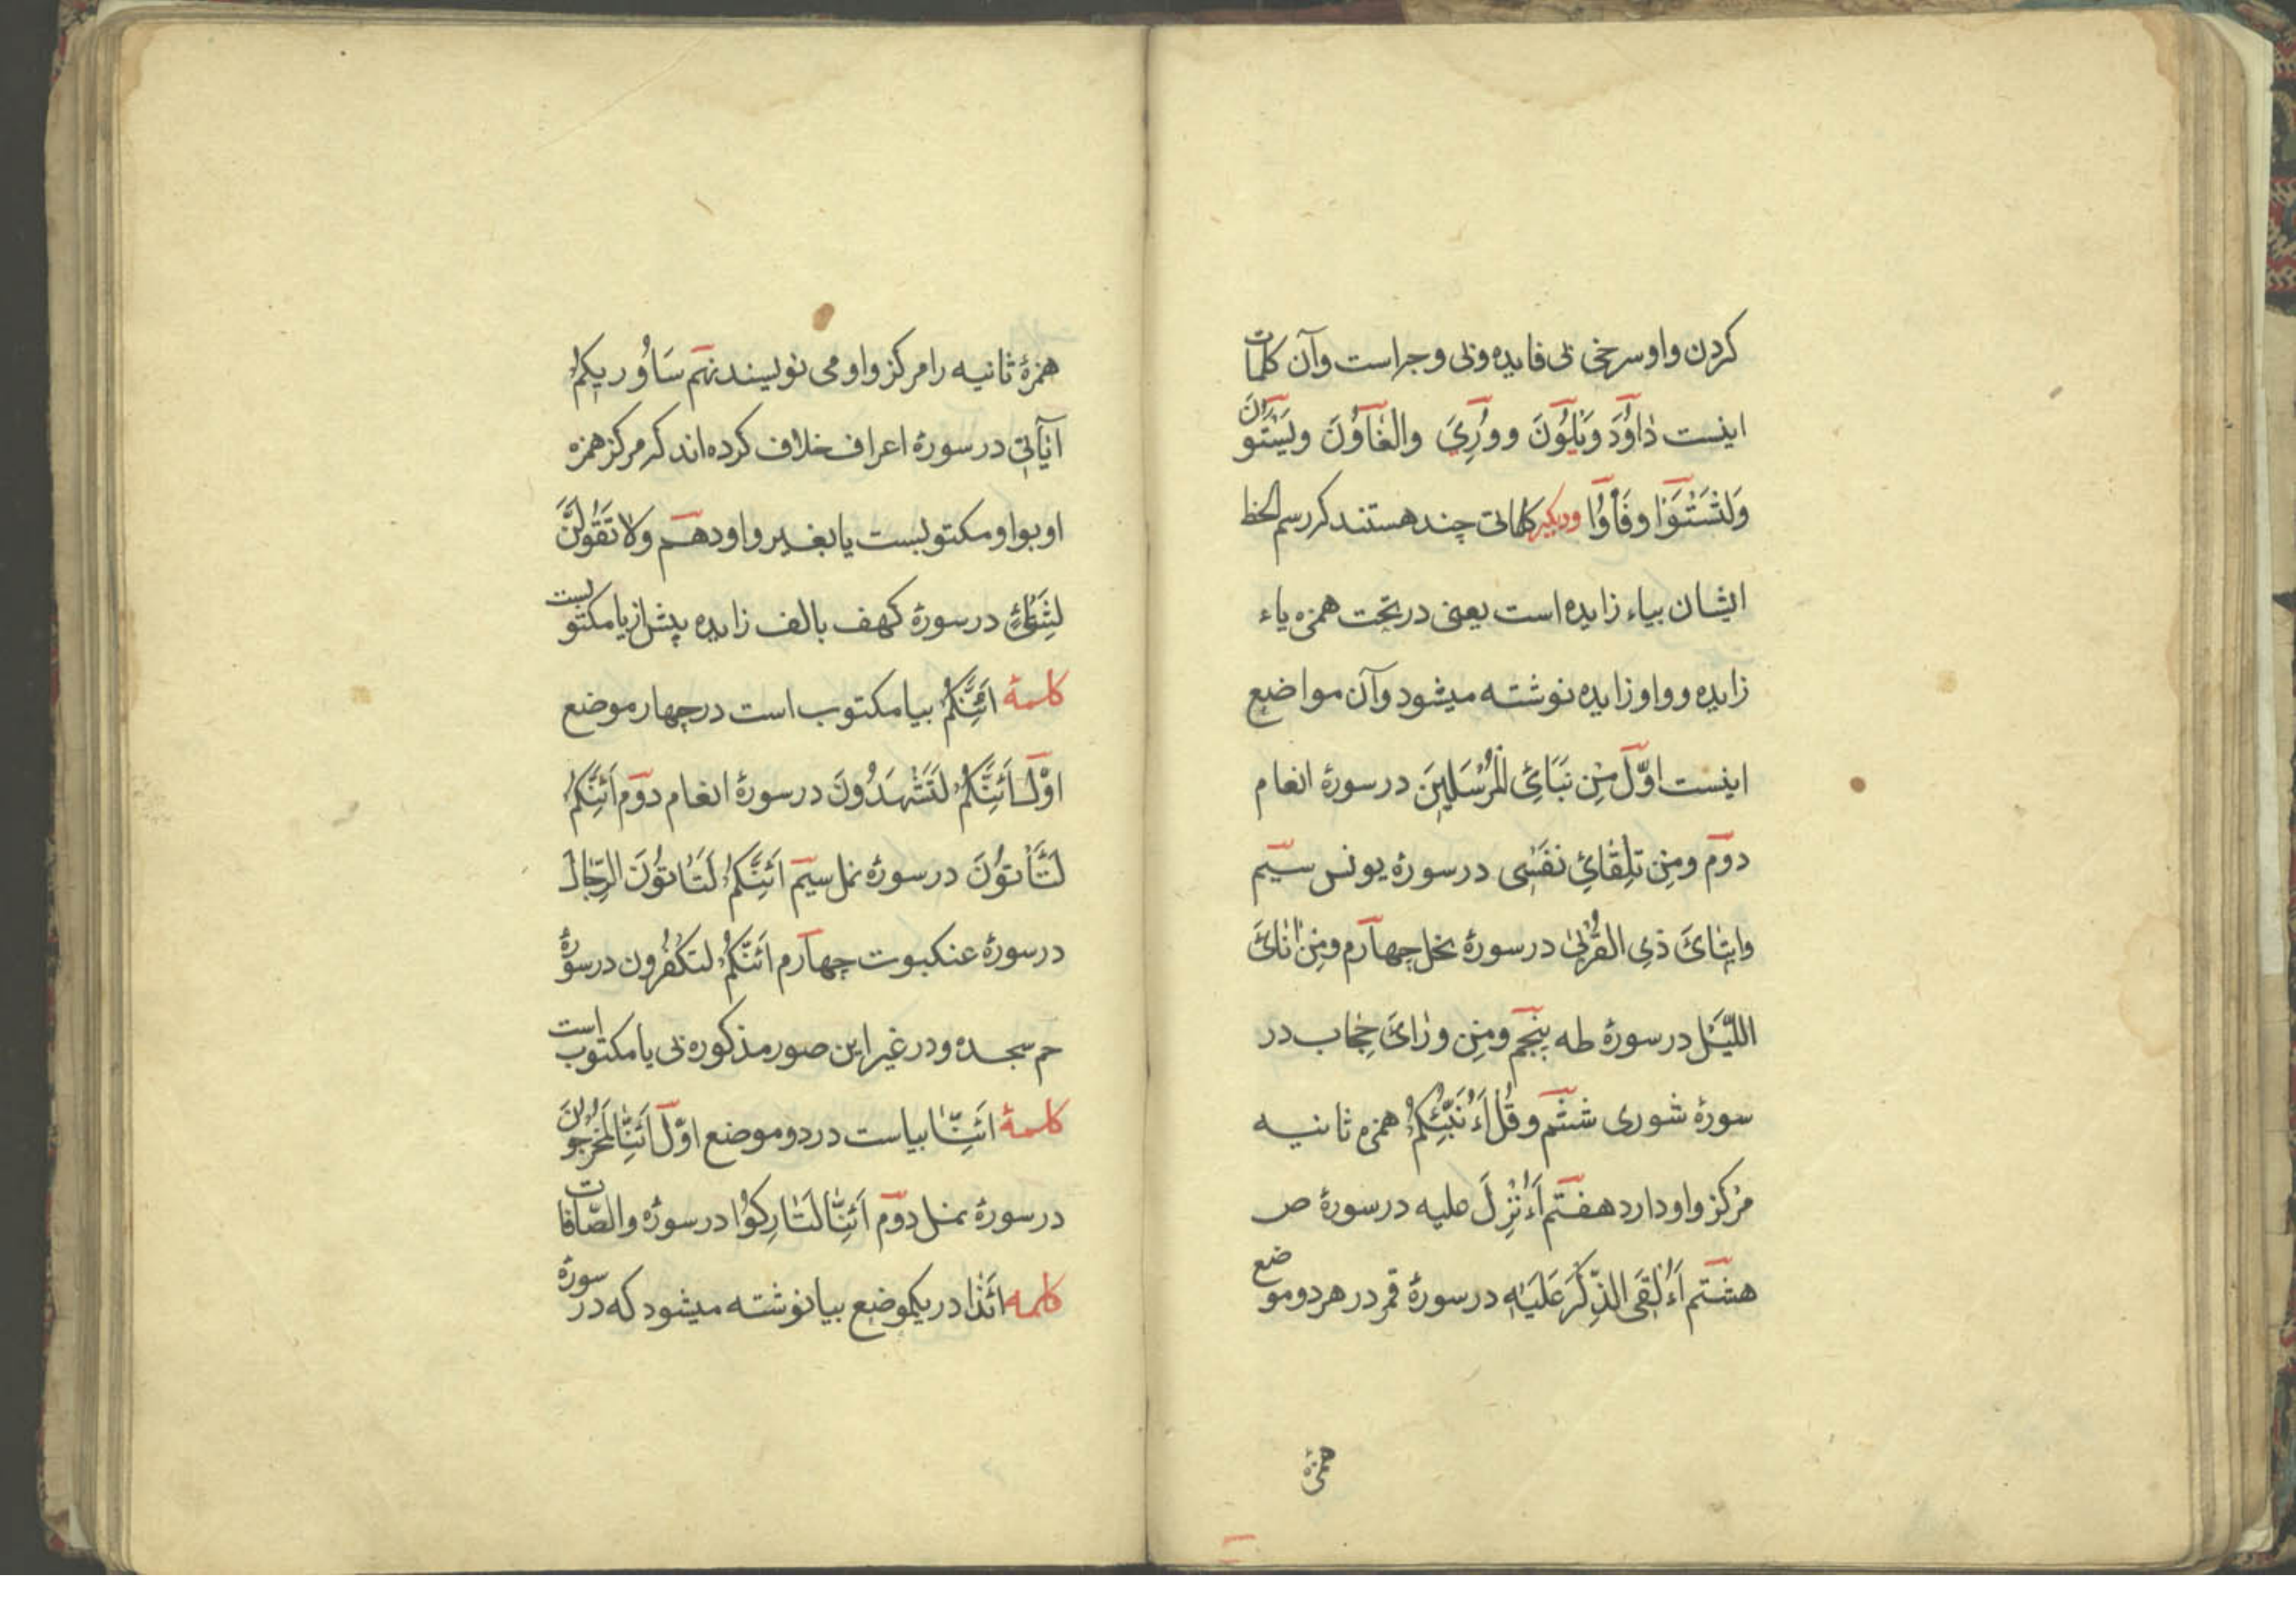 کردن واو سرخی بی فایده و بی وجر است وآن کلمات
اینست دٰاوُدَ وَیَلْوُنَ و وُرِیَ والغٰاوُنَ ویَسْتَوُنَ
وَلِتَسْتَوٗا وفَأْوُٓا ودیکر کلماتی چند هستند کر رسم الخط
ایشان بیاء زایده است یعنی در تحت همزه یاء
زایده وواو زایده نوشته میشود وآن مواضع
اینست اوّل مِنْ نَبَائِ الْمُرْسَلِینَ در سورهٔ انعام
دوم ومِنْ تِلْقٰائِ نَفْسِی در سورهٔ یونس سیّم
وایتٰائ ذِی القُرْبیٰ در سورهٔ نحل چهارم ومِنْ اٰنٰائَ
اللَّیْل در سورهٔ طه پنجم ومِنْ ورٰائ حِجٰاب در
سورهٔ شوری ششم وقُل اَءُنَبِّئُکُمْ همزهٔ ثانیه
مرکز واو دارد هفتم اَءُنْزِلَ علیه در سورهٔ ص
هشتم اَءُلْقِیَ الذِّکْرُ عَلَیْهِ در سورهٔ قمر در هر دو موضع
همزهٔ
همزهٔ ثانیه را مرکز واو می نویسند نهم سَاُورِیکُمْ
اٰیٰاتِی در سورهٔ اعراف خلاف کرده اند کر مرکز همزه
او بواو مکتوبست یا بغیر واو دهم ولا تَقُولَنَّ
لِشَائْءٍ در سورهٔ کهف بالف زایده پیش از یا مکتوبست
کلمهٔ اَئِنَّکُمْ بیا مکتوب است در چهار موضع
اوّل اَئِنَّکُمْ لَتَشْهَدُونَ در سورهٔ انعام دوم اَئِنَّکُمْ
لَتَأْتُونَ در سورهٔ نمل سیّم اَئِنَّکُمْ لَتَأْتُونَ الرِّجٰالَ
در سورهٔ عنکبوت چهارم اَئِنَّکُمْ لتَکْفُرون در سورهٔ
حم سجده ودر غیر این صور مذکوره بی یا مکتوب است
کلمهٔ اَئِنّٰا بیاست در دو موضع اوّل اَئِنّٰا لَمُخْرَجُونَ
در سورهٔ نمل دوّم اَئِنّٰا لَتٰارِکُوا در سورهٔ والصّافات
کلمه اَئِذٰا در یکموضع بیا نوشته میشود که در سورهٔ